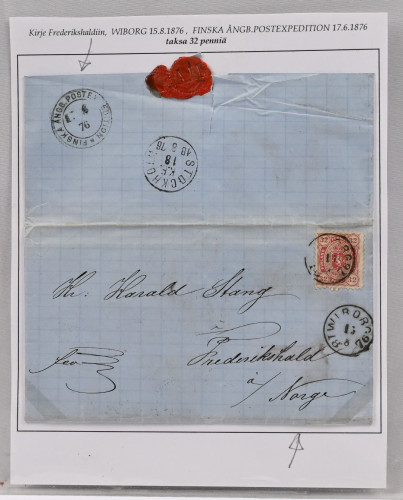 Kirje Frederikshaldiin, WIBORG 15.8.1876 , FINSKA ÅNGB.POSTEXPEDITION 17.6.1876
taksa 32 penniä
FINSKA ÅNGB. POSTEX EDITION
8
76
STOCKHOLM
K.E.
18
8 76
32 32
WIBORG
15
8
76
Hr. Harald Stang
à
Frederikshald
à/
Norge